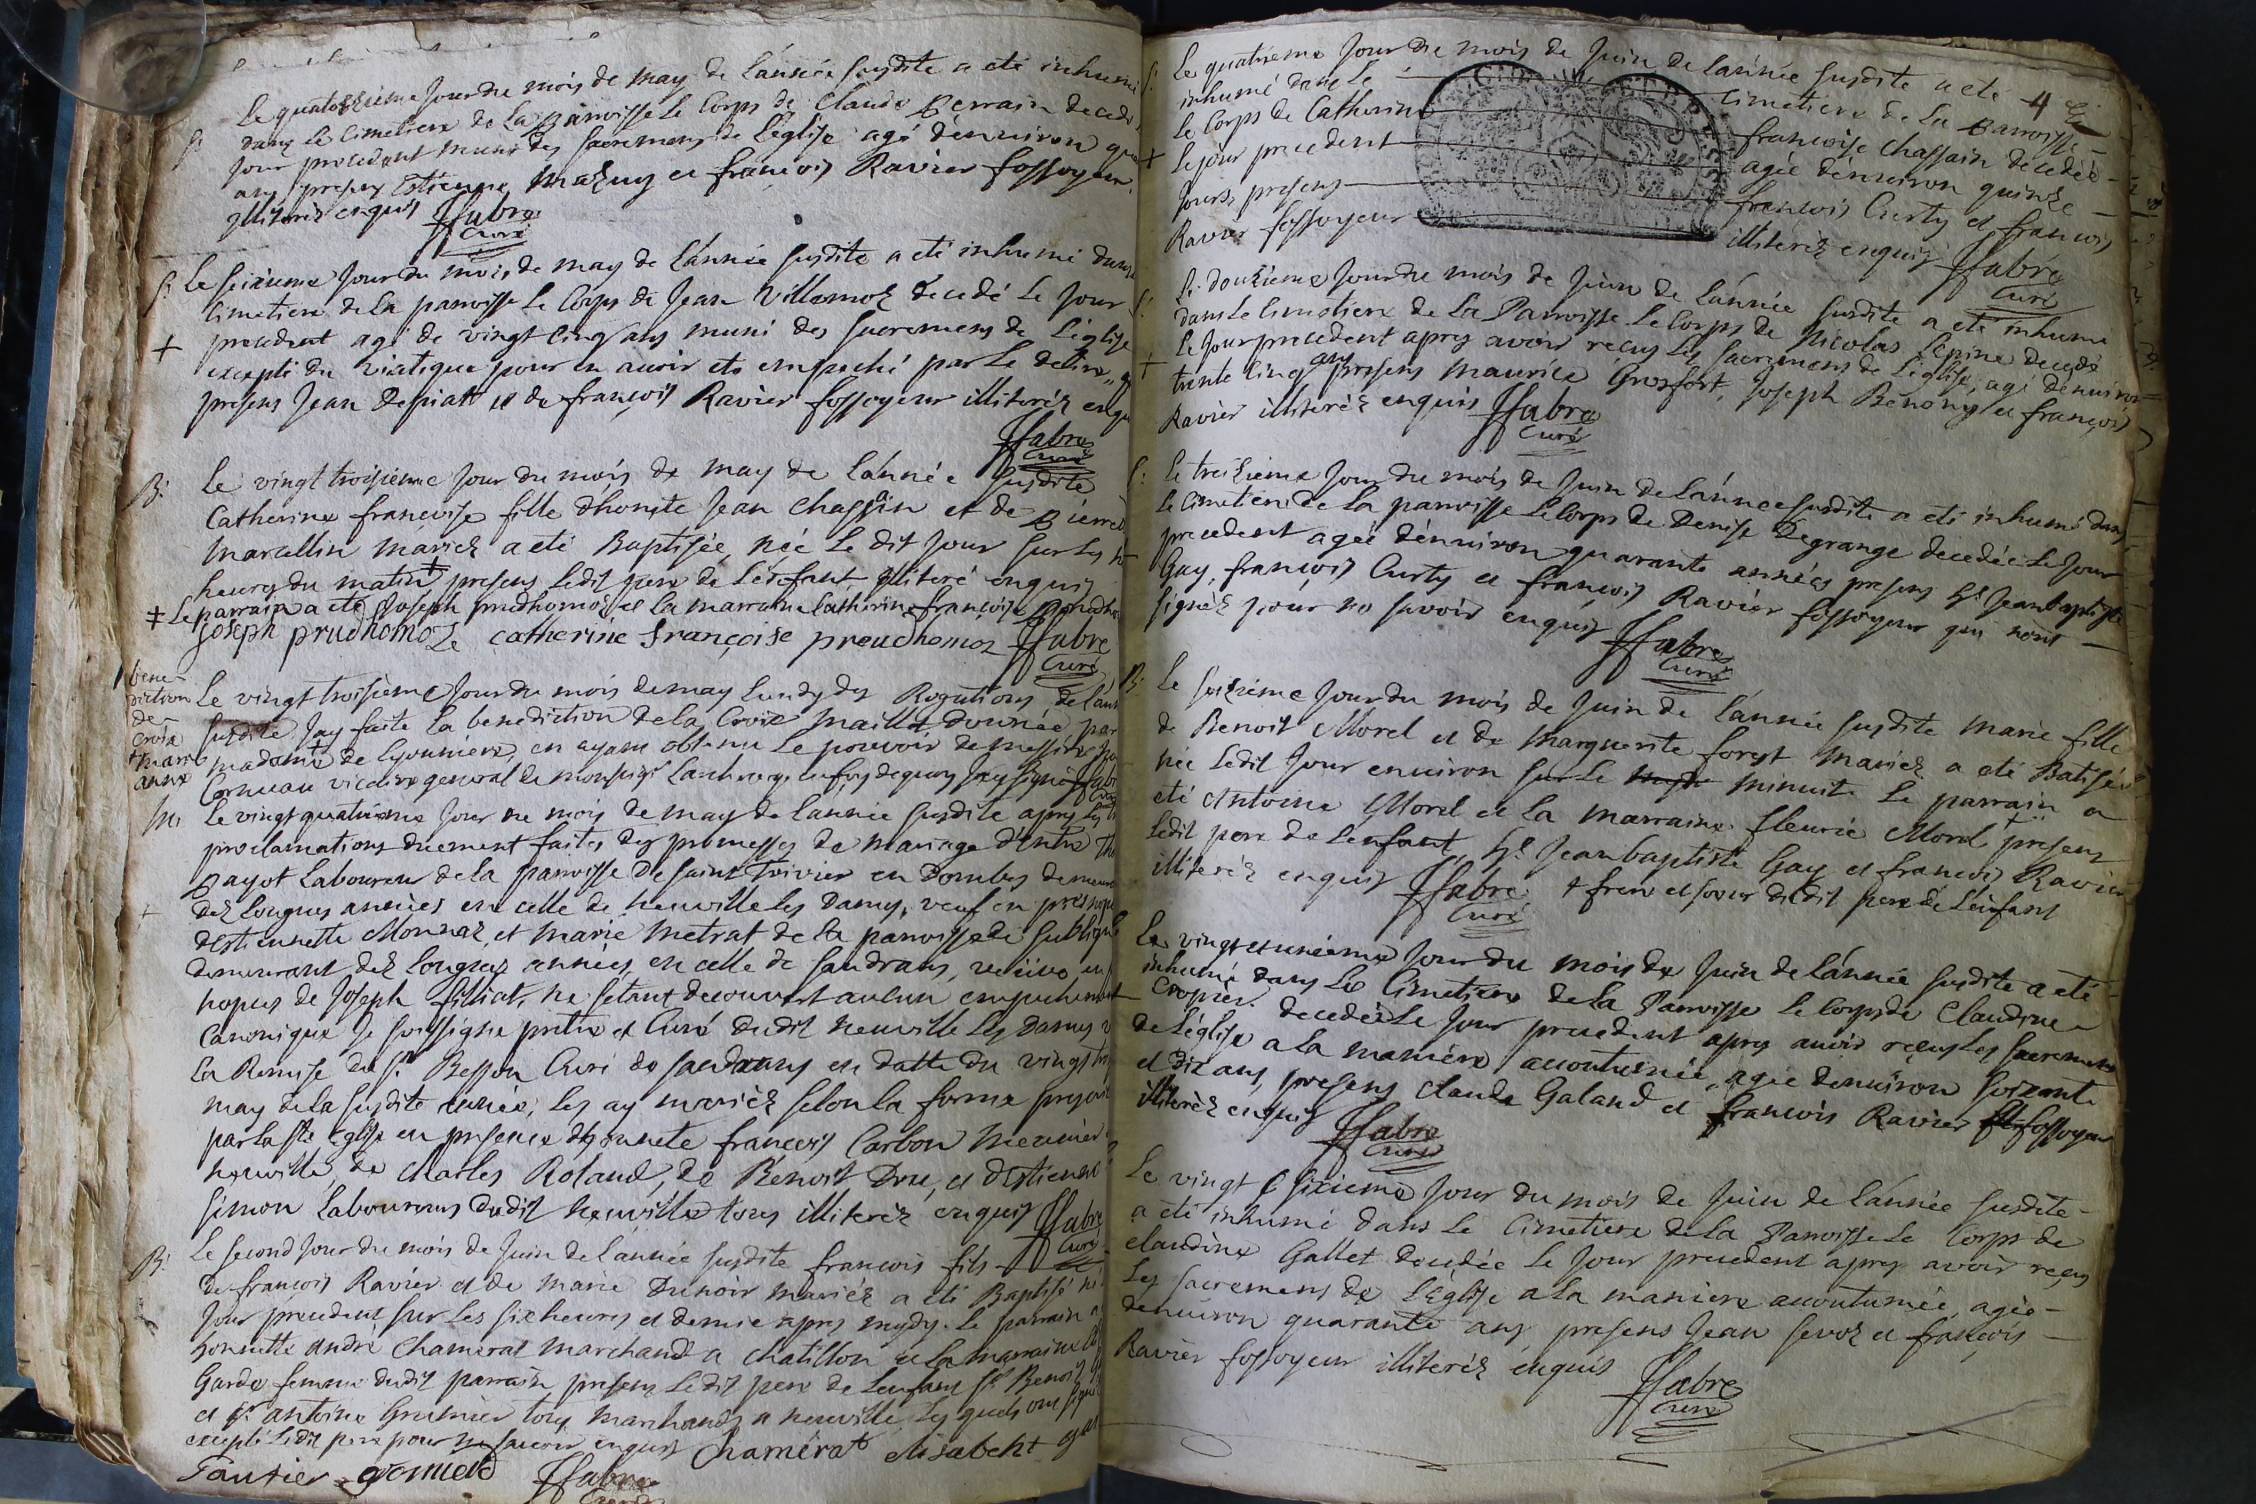 Le quatorzieme jour du mois de may de l'année susdite a eté inhumé
S: dans le cimetiere de la Parroisse le corps de Claude Perrain decedé
jour precedent muni des sacremens de l'église agé d'environ
ans presens Estienne et françois Ravier fossoyeur
illiterés enquis ffabre
Curé
S: Le seixieme jour du mois de may de l'année susdite a eté inhumé dans
cimetiere de la parroisse le corps de Jean Villemoz decedé le jour
+ precedent agé de vingt cinq ans muni des sacremens de L'eglise
excepté du viatique pour en avoir eté empeché par le delire
presens Jean Depiatt et de françois Ravier fossoyeur illiterés
ffabre
Curé
B: Le vingt troisieme jour du mois de may de l'année susdite
Catherine françoise fille d'honnete Jean Chassain et de Pierrette
Marcellin mariez a eté Baptisée, née le dit jour sur les
heures du matin + presens ledit pere de l'enfant illiteré enquis
‡ Le parrain a eté Joseph prudhomoz et la marraine Catherine françoise
joseph prudhomoz catherine françoise preudhomoz ffabre
Curé
bene-
diction
de
croix
Le vingt troisieme jour du mois de may lundy des Rogations de l'année
susdite jay faite la benediction de la Croix Maillet donnée par
+ marianne madame + de Lyonniere, en ayant obtenu le pouvoir de messire
Cornuau vicaire general de monseigr l'archeveque
m: Le vingt quatrieme jour de mois de may de l'année susdite apres les
proclamations duement faites des promesses de mariage d'entre
Payot Laboureur de la parroisse de saint Trivier en Dombes demeurant
dez longues années en celle de Neuville les Dames, veuf en
d'Estiennette Monnaz, et Marie Metrat de la parroisse de
demeurant dez longues années en celle de Sandrans, veuve en
nopces de Joseph filliat, ne setant decouvert aucun empechement
Canonique Je soussigne pretre et Curé dudit Neuville les Dames
la Remise du Sr Besson Curé de Sandrans en datte du vingt
may de la susdite année, les ay mariés selon la forme
par la Ste Eglise en presence d'honnete françois Carbon meunier
neuville, de Charles Roland, de Benoit Dru, et d'Estienne
Simon Laboureurs dudit Neuville tous illiterés enquis ffabre
Curé
B: Le second jour du mois de Juin de l'année susdite francois fils
de francois Ravier et de marie Dunoir mariés a eté Baptisé né
jour precedent sur les six heures et demie apres midy. Le parrain
honnette andré Chamerat marchand a Chatillon et la marraine
Garde femme dudit parrain presens ledit pere de l'enfant Sr Benoit
et Sr antoine Grumier tous marchands a neuville, lesquels ont signé
excepté ledit pere pour ne savoir enquis Chamérat elisabeht
ffabre
Curé
4
S: Le quatrieme jour du mois de Juin de l'année susdite a eté
inhumé dans le cimetiere de la Parroisse
le corps de Catherine françoise Chassain decedée
+ le jour precedent agée d'environ quinze
jours, presens françois Curty et françois
Ravier fossoyeur illiterés enquis ffabre
Curé
S: Le douzieme jour du mois de Juin de l'année susdite a eté inhumé
dans le cimetiere de la Parroisse le corps de Nicolas Lepine decedé
le jour precedent apres avoir reçus les sacremens de l'église, agé d'environ
+ trente cinq ans presens Maurice Grosfort, Joseph Benony et françois
Ravier illiterés enquis ffabre
Curé
S: Le treizieme jour du mois de Juin de l'année susdite a eté inhumé dans
le cimetiere de la parroisse le corps de Denise Degrange decedée le jour
precedent agée d'environ quarante années presens Sr Jean baptiste
Gay, françois Curty et françois Ravier fossoyeur qui n'ont
signés pour ne savoir enquis ffabre
Curé
B: Le seizieme jour du mois de Juin de l'année susdite Marie fille
de Benoit Morel et de Marguerite forest mariés a eté Batisée
née ledit jour environ sur le minuite Le parrain a
eté Antoine Morel et la marraine fleurie Morel + presens
ledit pere de l'enfant, Sr Jean baptiste Gay et françois Ravier
illiterés enquis ffabre + frere et soeur dudit pere de l'enfant
Curé
Le vingt et unieme jour du mois de Juin de l'année susdite a eté
inhumé dans le Cimetiere de la Parroisse le corps de Claudine
Cropier. decedée le jour precedent apres avoir reçus les sacremens
de l'église a la maniere accoutumée, agée d'environ soixante
et dix ans, presens Claude Galand et françois Ravier fossoyeur
illiterés enquis ffabre
Curé
Le vingt sixieme jour du mois de Juin de l'année susdite
a eté inhumé dans le Cimetiere de la Parroisse le corps de
claudine Gallet decedée le jour precedent apres avoir reçus
les sacremens de L'Eglise a la maniere accoutumée, agée
d'environ quarante ans presens Jean Sevoz et françois
Ravier fossoyeur illiterés enquis ffabre
Curé